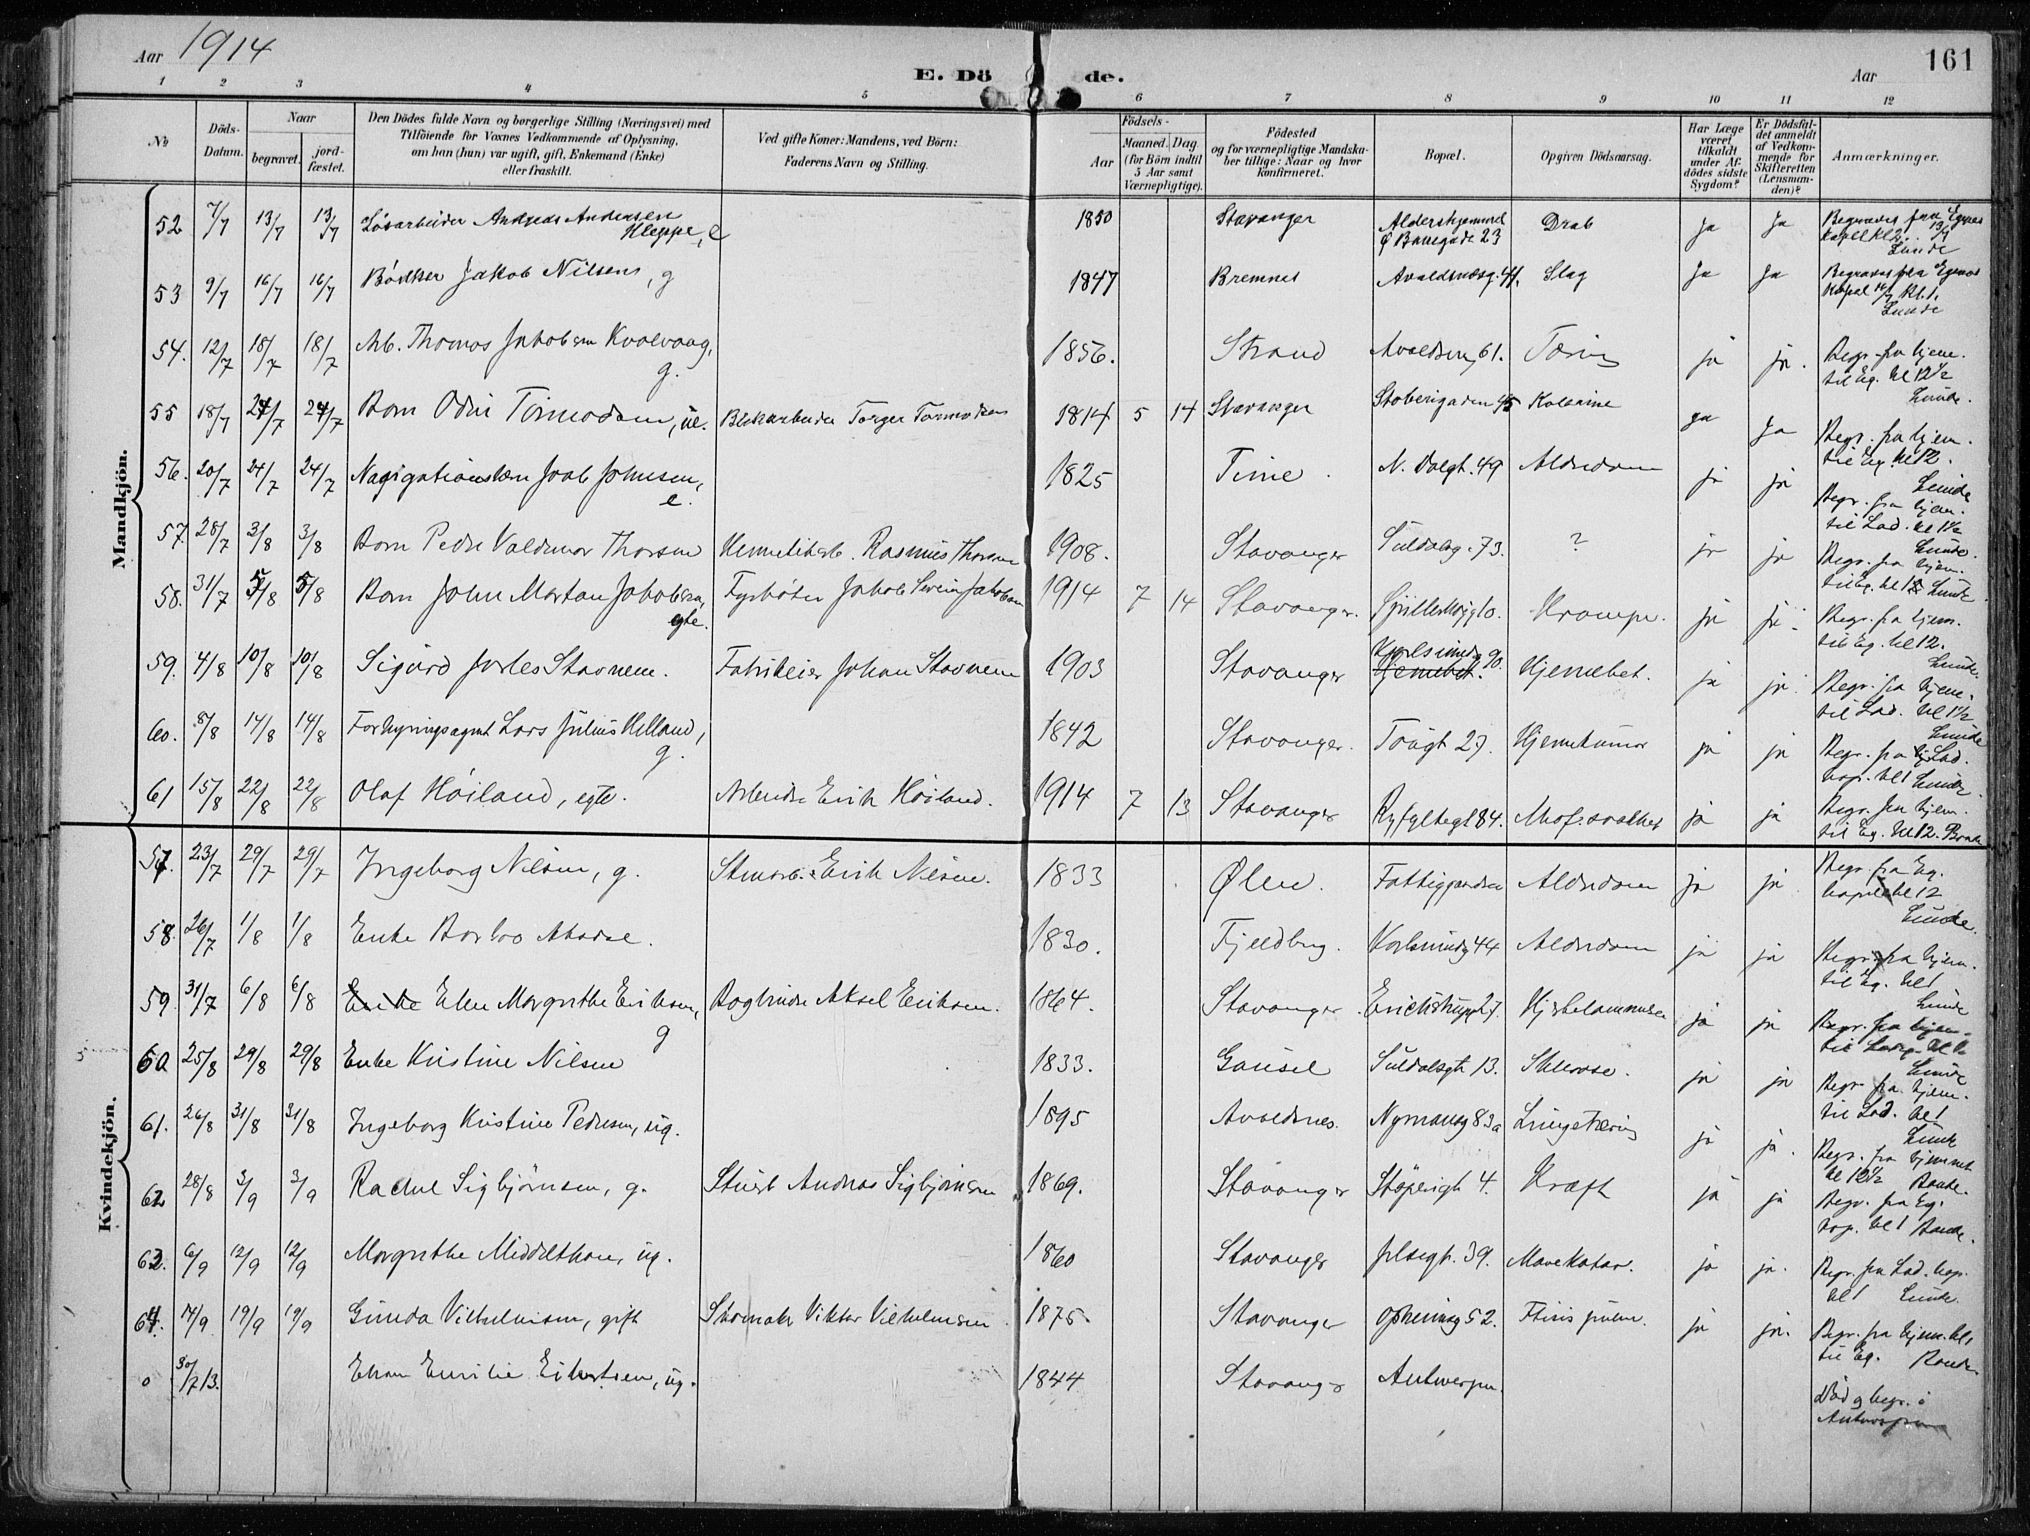 Aar 1914
E. Dö de.
Aar
161
1 2 3 4 5 6 7 8 9 10 11 12
No
Döds-Datum.
Naar begravet. jordfæstet.
Den Dödes fulde Navn og borgerlige Stilling (Næringsvei) med
Tilföiende for Voxnes Vedkommende af Oplysning,
om han (hun) var ugift, gift, Enkemand (Enke)
eller fraskilt.
Ved gifte Koner: Mandens, ved Börn:
Faderens Navn og Stilling.
Födsels-
Aar Maaned. Dag.
(for Börn indtil
5 Aar samt
Værnepligtige).
Födested
og for værnepligtige Mandskaber tillige: Naar og hvor
konfirmeret.
Bopæl.
Opgiven Dödsaarsag.
Har Læge
været
tilkaldt
under Afdödes sidste
Sygdom?
Er Dödsfaldet anmeldt
af Vedkommende for
Skifteretten
(Lensmanden)?
Anmærkninger.
Mandkjön.
52 7/7 13/7 13/7 Løsarbeider Andreas Andersen Kleppe, e 1850 Stavanger Aldershjemmet Ø Banegade 23 Drab Ja Ja Begraves fra Egnes Kapel kl 2 13/7 Lunde
53 9/7 16/7 16/7 Bödker Jakob Nilsen, g 1847 Bremnes Avaldsnesg. 41. Slag Ja Ja Begraves fra Egenes Kapel 16/7 Kl. 1. Lunde
54. 12/7 18/7 18/7 Arb. Thomas Jakobsen Kvalvaag, g. 1856. Strand Avaldsnsg 61. Tæring ja ja. Begr. fra hjem. til Eg. kl 12 1/2 Lunde.
55 18/7 24/7 24/7 Barn Odin Tormodsen, ue. Blikarbeider Torger Tormodsen 1814 5 14 Stavanger 45 Kolerine ja Ja Begr. fra hjem. til Eg. kl 12. Lunde
56. 20/7 24/7 24/7 Johnsen, e. 1825 Time N. Dalgt. 49 Alderdom ja ja Begr. fra hjem. til Lad. kl 1 1/2 Lunde.
57. 28/7 3/8 3/8 Barn Peder Valdemar Thorsen Rasmus Thorsen 1908. Stavanger Suldalsg. 73. ? ja ja Begr. fra hjem. til Eg. kl 12 Lunde
58. 31/7 5/8 5/8 Barn John Martan Jakobsen, egte. Fyrbøter Jakob Severin Jakobsen 1914 7 14 Stavanger. Krampe. ja ja. Begr. fra hjem. til Eg. kl 12. Lunde.
59. 4/8 10/8 10/8 Sigurd Jarles Stavnem. Fabrikeier Johan Stavnem 1903 Stavanger 90. Hjernebet. ja ja. Begr. fra hjem. til Lad. kl 1 1/2 Lunde
60. 8/8 14/8 14/8 Forhyringsagent Lars Julius Helland, g. 1842 Stavanger. 27. Hjernetumor ja ja Begr. fra Lad. kap. kl 1 Lunde.
61 15/8 22/8 22/8 Olaf Höiland, egte. Arbeider Erik Höiland. 1914 7 13 Stavanger Ryfylkegt 84. ja ja Begr. fra hjem. til Eg. kl 12.
Kvindekjön.
57. 23/7 29/7 29/7 Ingeborg Nilsen, g. Erik Nilsen. 1833 Ølen. Fattiggaarden Alderdom ja ja. Begr. fra Eg. kapel kl 12 Lunde.
58. 26/7 1/8 1/8 Enke Barbro 1830. Fjeldberg. Karlsmindeg 44 Alderdom ja ja Begr. fra hjem. til Eg. kl 1 Lunde
59. 31/7 6/8 6/8 Enke Elen Margrethe Eriksen, g Aksel Eriksen. 1864. Stavanger. 27. ja ja Begr. fra hjem. til Lunde
60 25/8 29/8 29/8 Enke Kristine Nilsen 1833. Gausel Suldalsgt 13. Sklerose. ja ja Begr. fra hjem. til Lad. kl 1 Lunde
61. 26/8 31/8 31/8 Ingeborg Kristine Pedersen, ug. 1895 Avaldsnes. Nymansg 83a Lungetæring ja ja. Begr. fra hjemmet kl 12 1/2
62 28/8 3/9 3/9 Rachel Sigbjörnsen, g. Andreas Sigbjörnsen 1869. Stavanger Støperigt 4. Kræft ja ja Begr. fra Eg. kap. kl 1
63. 6/9 12/9 12/9 Margrethe Middelthon, ug. 1860 Stavanger 39. Mavekatar. ja ja. Begr. fra Lad. kap. kl 1 Lunde.
64. 14/9 19/9 19/9 Gunda Vilhelmsen, gift Viktor Vilhelmsen 1875. Stavanger 52. ja ja. Begr. fra hjem. kl 1 til Eg.
o 30/7 13. Emilie ug. 1844 Stavanger Antwerpen. Död og begr. i Antwerpen